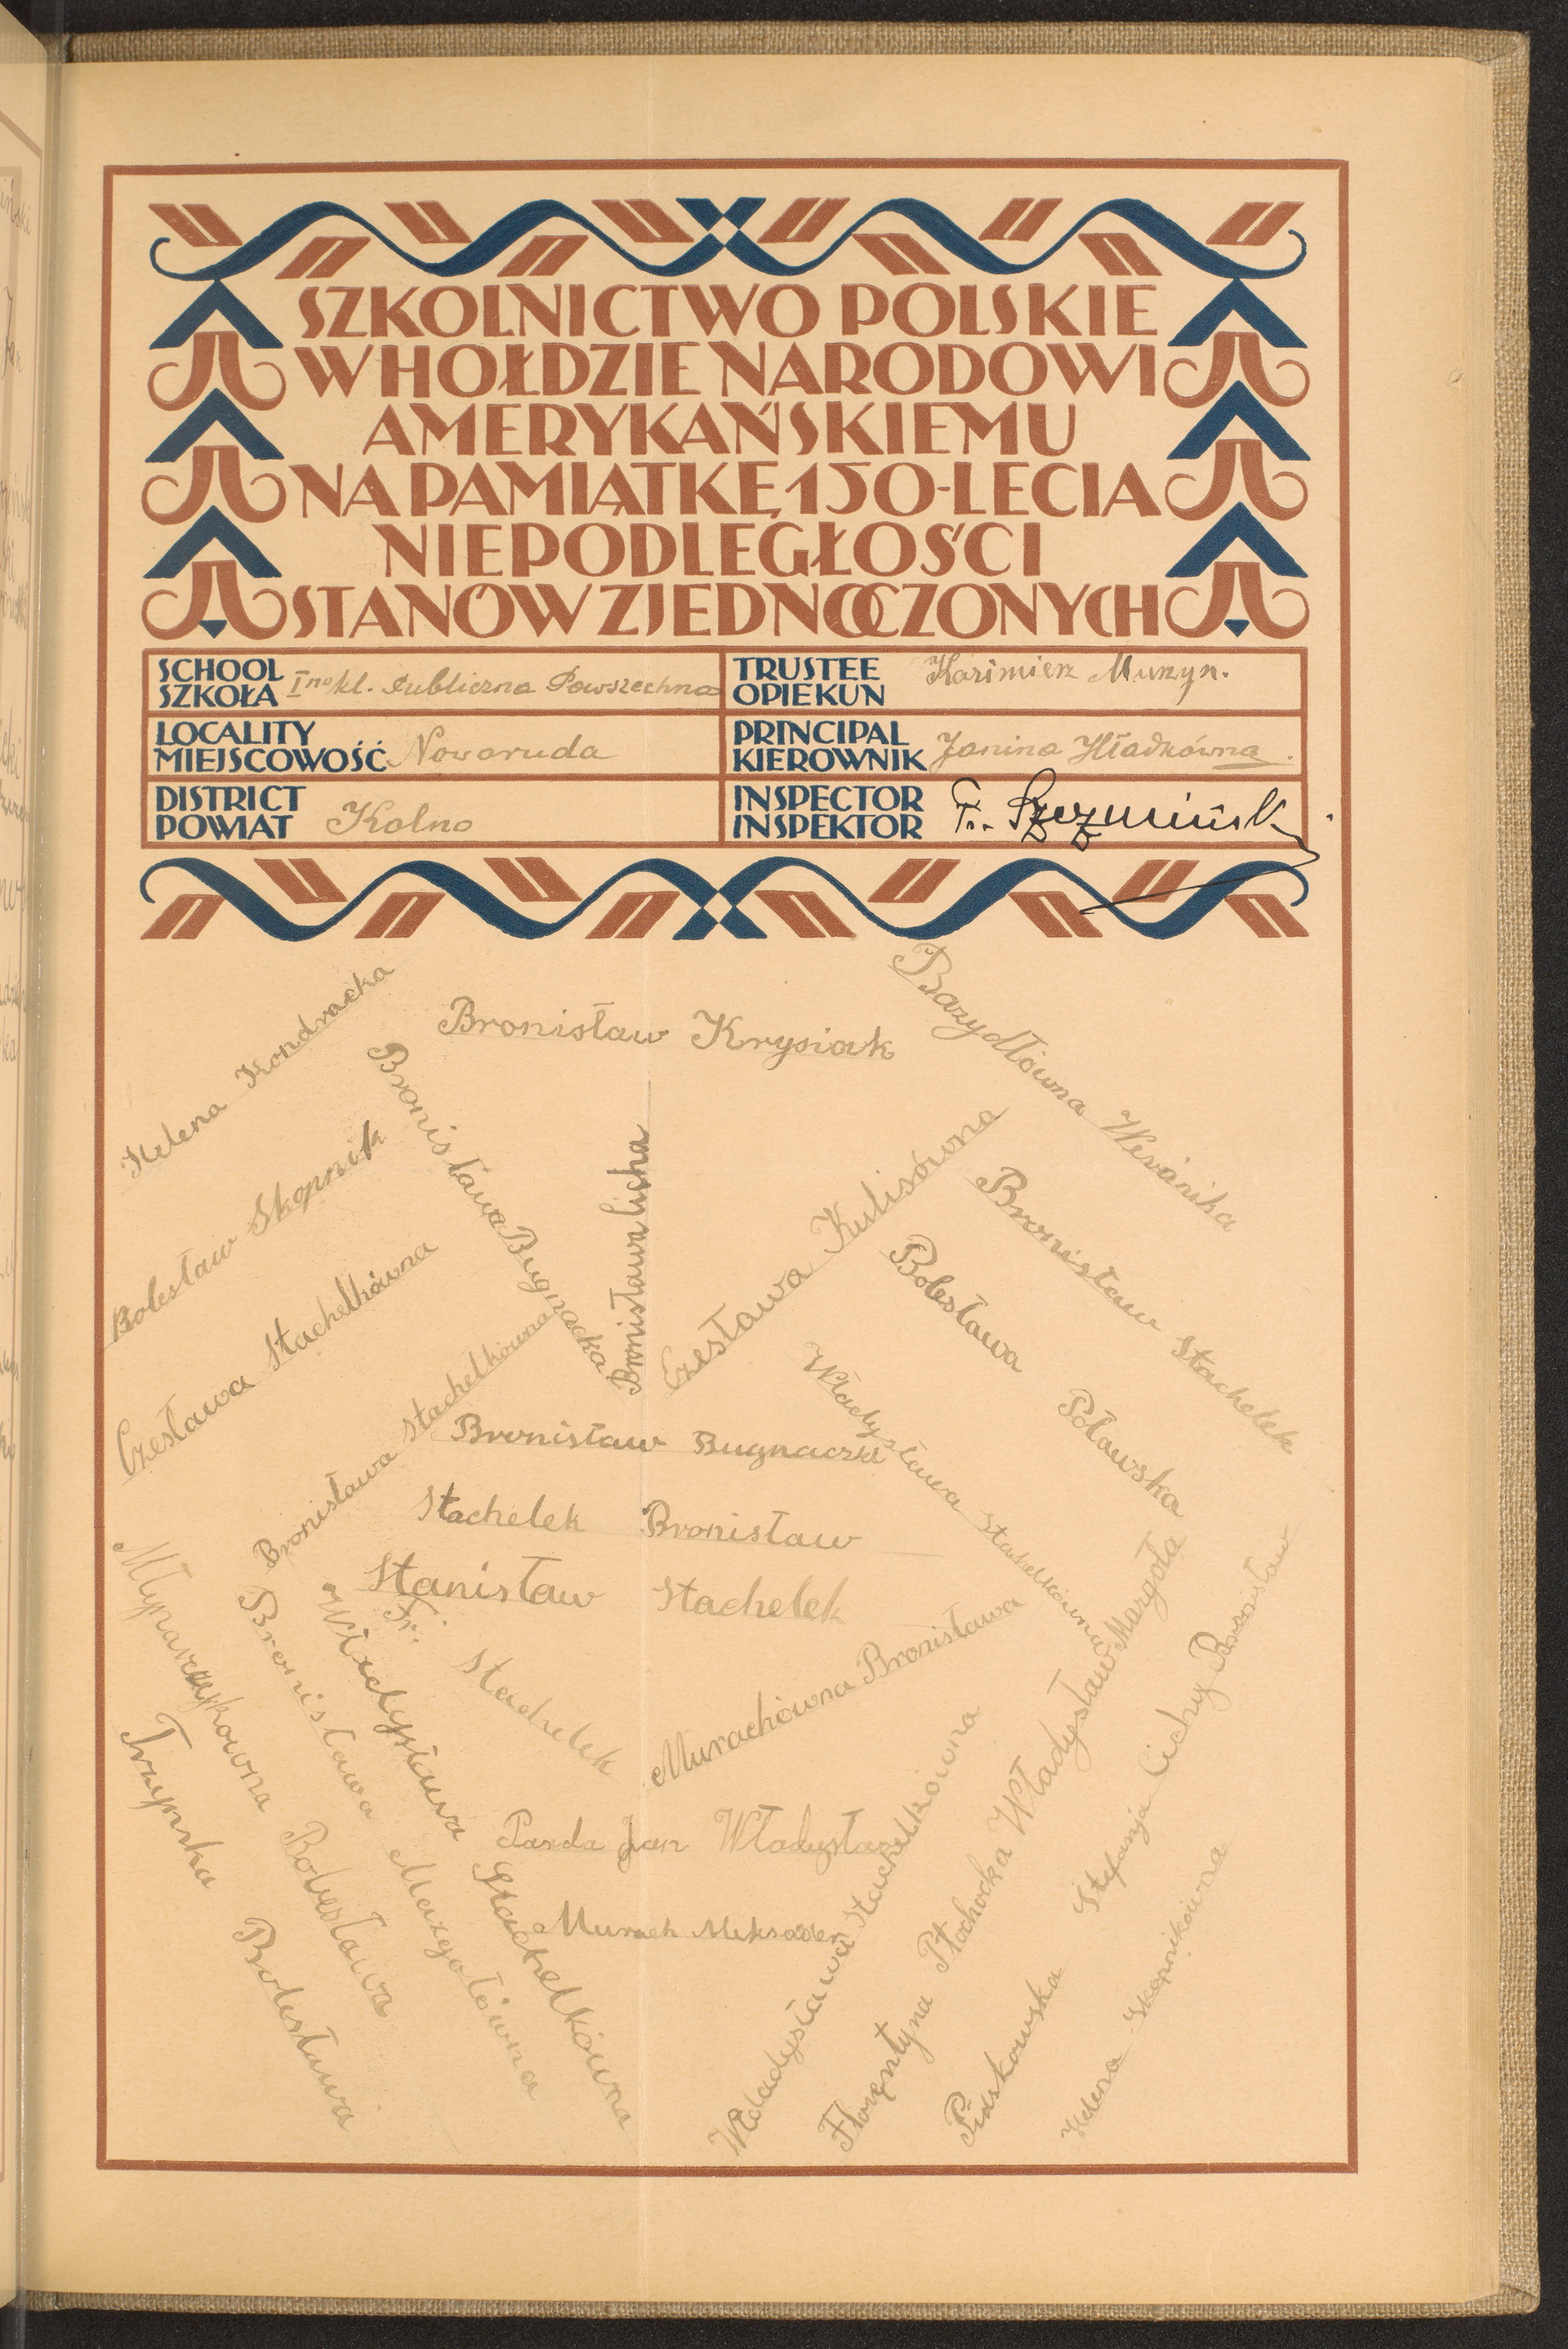 SZKOLNICTWO POLSKIE
W HOŁDZIE NARODOWI
AMERYKAŃSKIEMU
NA PAMIĄTKĘ 150-LECIA
NIEPODLEGŁOŚCI
STANÓW ZJEDNOCZONYCH
SCHOOL
SZKOŁA Ino kl. Publiczna Powszechna
TRUSTEE
OPIEKUN Kazimierz Muzyn.
LOCALITY
MIEJSCOWOŚĆ Nowaruda
PRINCIPAL
KIEROWNIK Janina Hładkówna.
DISTRICT
POWIAT Kolno
INSPECTOR
INSPEKTOR
Helena Kondracka
Bronisław Krysiak
Bazydłówna Weronika
Bolesław Skopnik
Bronisława Bugnacka
Bronisława Cicha
Czesława Kulisówna
Bronisław Stachelek
Czesława Stachelkówna
Bolesława Poławska
Bronisława Stachelkówna
Władysława Stachelkówna
Bronisław Bugnacki
Stachelek Bronisław
Stanisław Stachelek
Fr. Stachelek
Murachówna Bronisława
Młynarczykowna Bolesława
Trzynska Bolesława
Bronisława Margołówna
Władysława Stachelkówna
Parda Jan Władysław
Murach Aleksander
Władysława Stachelkówna
Florentyna Płochocka
Władysław Margoła
Piaskowska Stefanja
Cichy Bronisław
Helena Skopnikówna